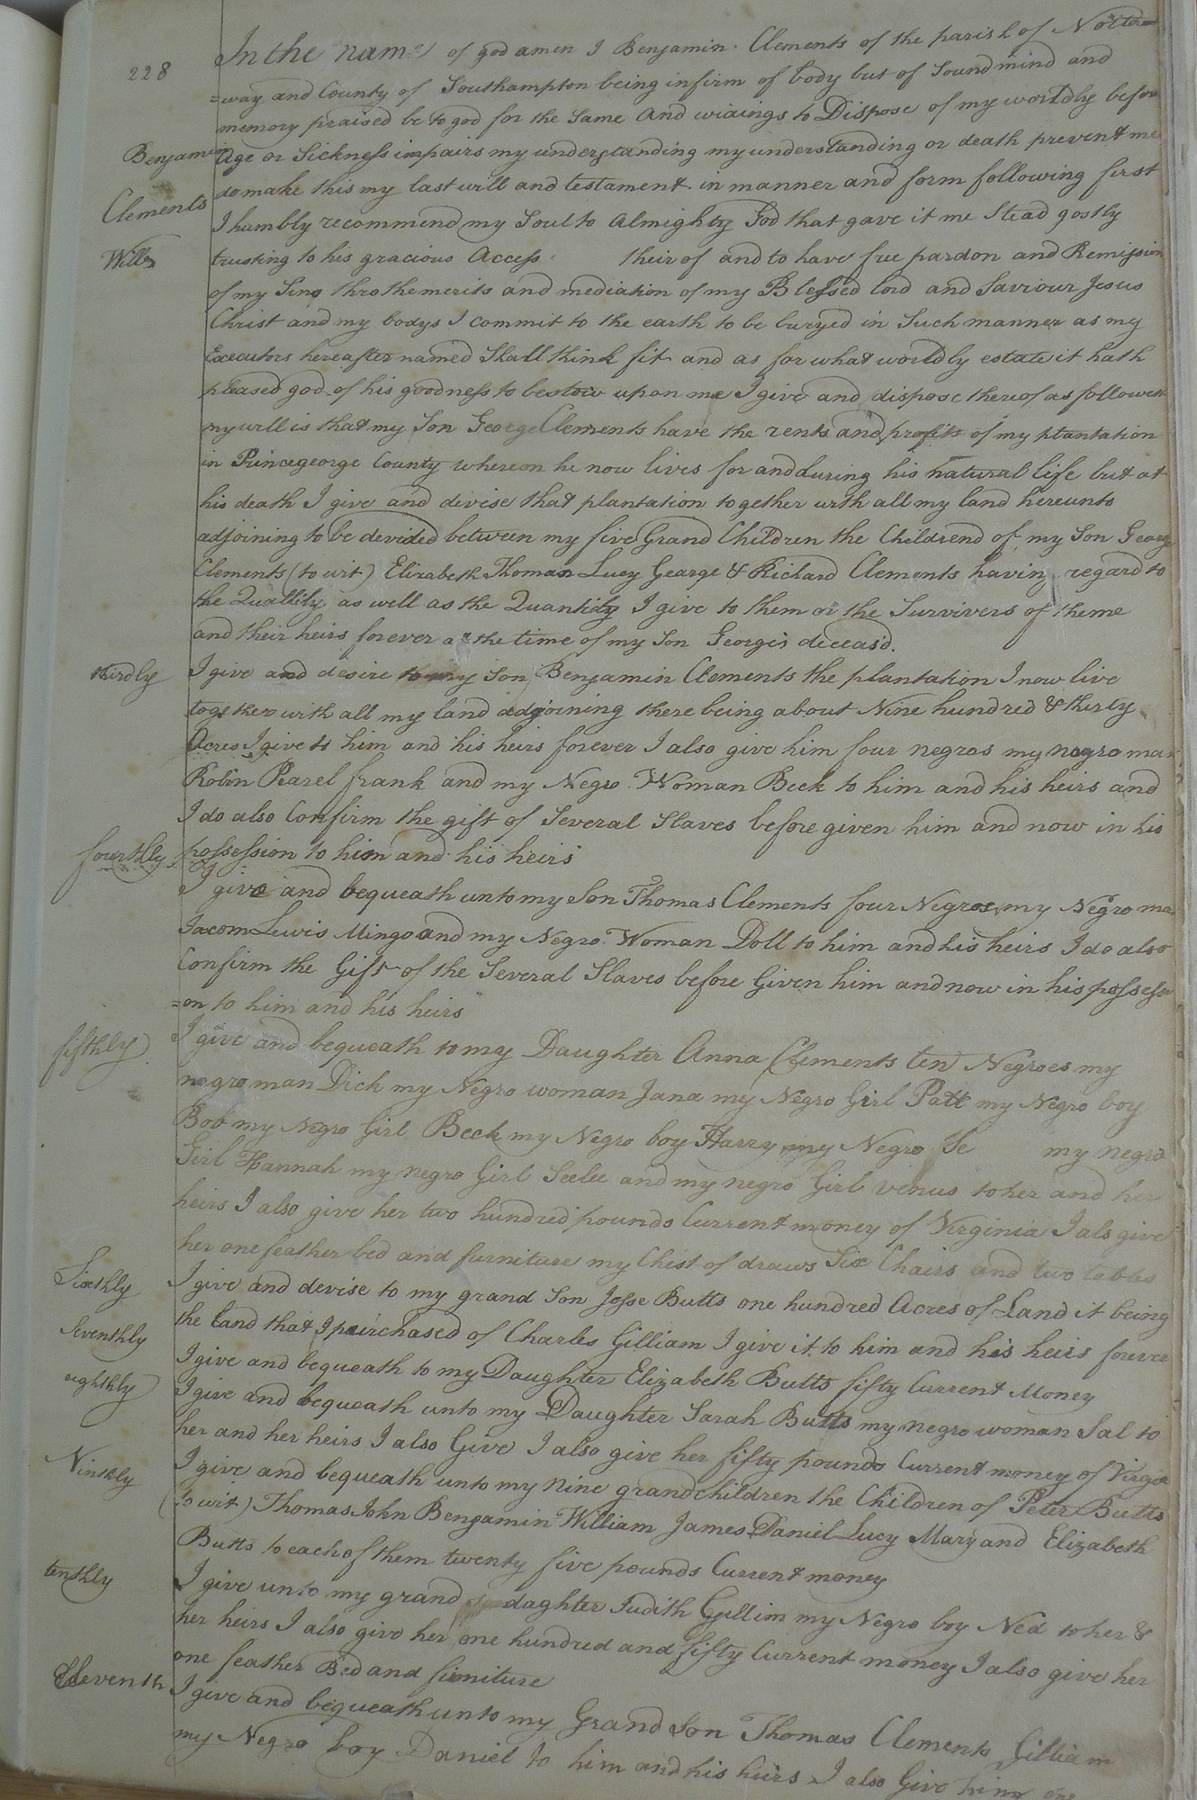 228
Benjamin
Clements
Will
In the name of god amen I Benjamin Clements of the parish of
=way and County of Southampton being infirm of body but of Sound mind and
memory praised be to god for the Same and to Dispose of my worldly before
Age or Sickness impairs my understanding my understanding or death prevent me
do make this my last will and testament in manner and form following first
I humbly recommend my Soul to Almighty God that gave it me Stead gostly
trusting to his gracious Access their of and to have free pardon and Remission
of my Sins thro the merits and mediation of my Blessed lord and Saviour Jesus
Christ and my bodys I commit to the earth to be buryed in Such manner as my
Executors hereafter named Shall think fit and as for what worldly estate it hath
pleased god of his goodness to bestow upon me I give and dispose thereof as
my will is that my Son George Clements have the rents and profits of my plantation
in Princegeorge County whereon he now lives for and during his natural life but at
his death I give and devise that plantation together with all my land hereunto
adjoining to be devided between my five Grand Children the Childrend of my Son George
Clements (to wit) Elizabeth Thomas Lucy George & Richard Clements having regard to
the Quallity as well as the Quantity I give to them or the Survivers of theme
and their heirs forever at the time of my Son George's deceasd.
thirdly
I give and desire to my Son Benjamin Clements the plantation I now live
together with all my land adjoining there being about Nine hundred & thirty
Acres I give to him and his heirs forever I also give him four negros my negro man
Robin frank and my Negro Woman Beck to him and his heirs and
I do also Confirm the gift of Several Slaves before given him and now in his
fourthly
possession to him and his heirs
I give and bequeath unto my Son Thomas Clements four Negroes my Negro man
Jacom Lewis Mingo and my Negro Woman Doll to him and his heirs I do also
Confirm the Gift of the Several Slaves before Given him and now in his possessi
=on to him and his heirs
fifthly
I give and bequeath to my Daughter Anna Clements ten Negroes my
negro man Dick my Negro woman Jana my Negro Girl Patt my Negro boy
Bob my Negro Girl Beck my Negro boy Harry my Negro my negro
Girl Hannah my negro Girl Seelee and my negro Girl venus to her and her
heirs I also give her two hundred pounds Current money of Virginia I als give
her one feather bed and furniture my Chest of draws Six Chairs and two tables
Sixthly
I give and devise to my grand Son Jesse Butts one hundred Acres of Land it being
the land that I purchased of Charles Gilliam I give it to him and his heirs forever
Seventhly
I give and bequeath to my Daughter Elizabeth Butts fifty Current Money
eighthly
I give and bequeath unto my Daughter Sarah Butts my negro woman Sal to
her and her heirs I also Give I also give her fifty pounds Current money of
Ninthly
I give and bequeath unto my Nine grandchildren the Children of Peter Butts
(to wit) Thomas John Bengamin William James Daniel Lucy Mary and Elizabeth
Butts to each of them twenty five pounds Current money
tenthly
I give unto my grand daghter Judith Gyllim my Negro boy Ned to her &
her heirs I also give her one hundred and fifty Current money I also give her
one feather Bed and furniture
Eleventh
I give and bequeath unto my Grand Son Thomas Clements Gilliam
my Negro boy Daniel to him and his heirs I also Give him one